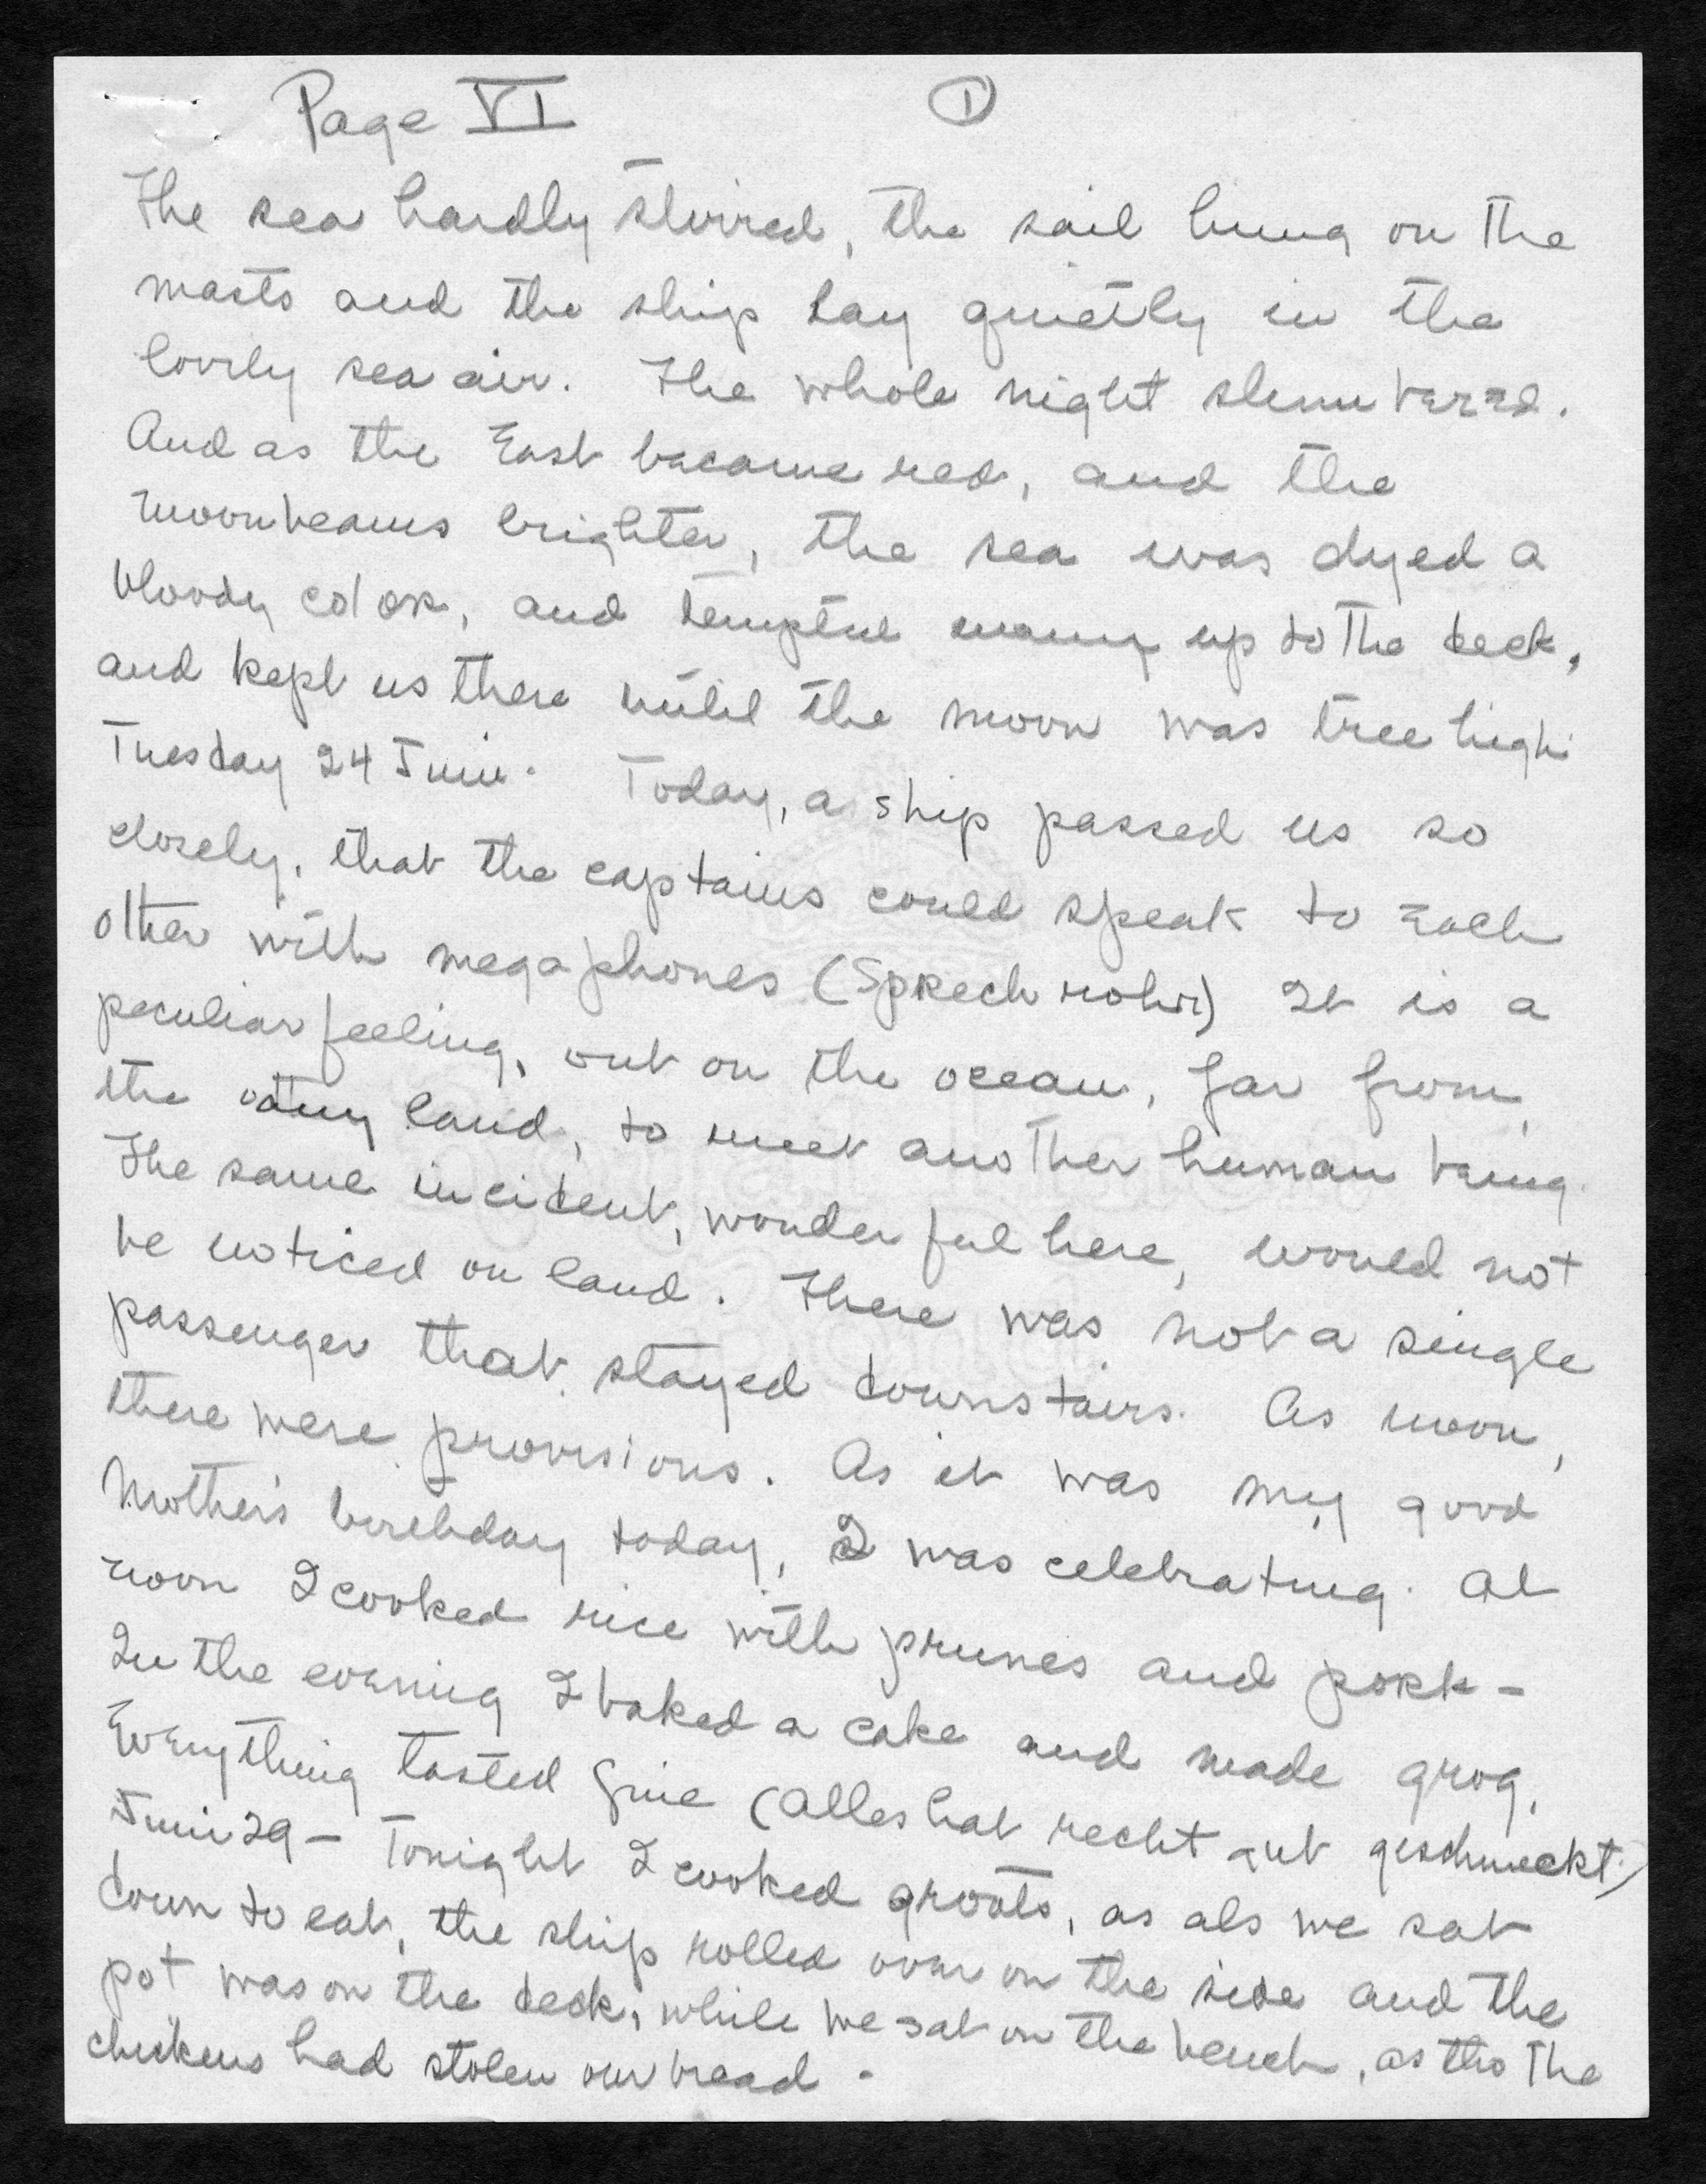 Page VI ①
The sea hardly stirred, the sail hung on the
masts and the ship lay quietly in the
lovely sea air. The whole night slumbered.
And as the East became red, and the
moonbeams brighter, the sea was dyed a
bloody color, and tempted many up to the deck,
and kept us there until the moon was tree high
Tuesday 24 Juni. Today, a ship passed us so
closely, that the captains could speak to each
other with megaphones (Sprech rohr) It is a
peculiar feeling, out on the ocean, far from
the land, to meet another human being.
The same incident, wonderful here, would not
be noticed on land. There was not a single
passenger that stayed downstairs. As noon,
there were provisions. As it was my good
Mother's birthday today, I was celebrating. At
noon I cooked rice with prunes and pork -
In the evening I baked a cake and made grog.
Everything tasted fine (Alles hat recht gut geschmeckt.)
Juni 29 - Tonight I cooked groats, as als we sat
down to eat, the ship rolled over on the side and the
pot was on the deck, while we sat on the bench, as tho the
chickens had stolen our bread -